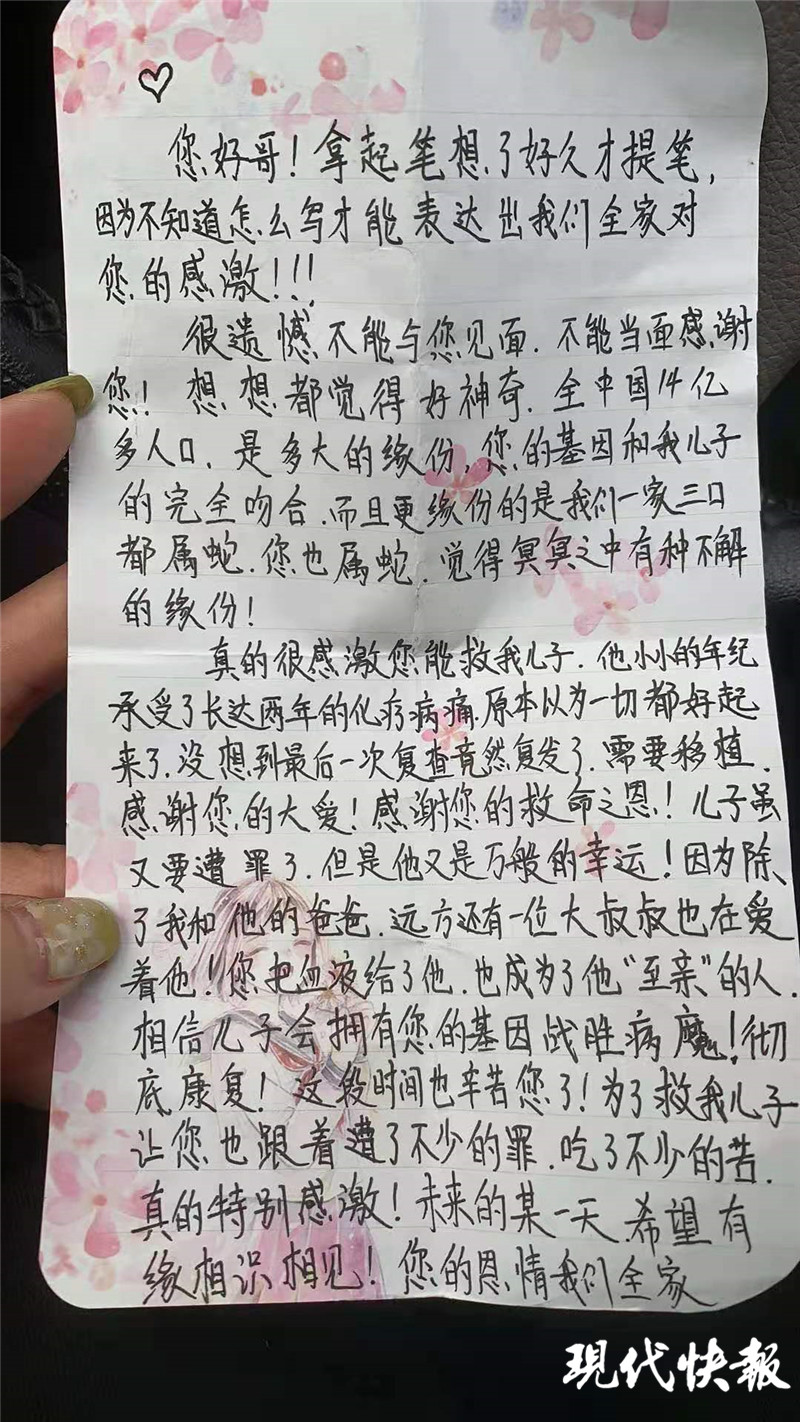 您好哥！拿起笔想了好久才提笔，
因为不知道怎么写才能表达出我们全家对
您的感激！！！
很遗憾不能与您见面.不能当面感谢
您！想想都觉得好神奇.全中国14亿
多人口.是多大的缘份,您的基因和我儿子
的完全吻合.而且更缘份的是我们一家三口
都属蛇.您也属蛇.觉得冥冥之中有种不解
的缘份！
真的很感激您能救我儿子.他小小的年纪
承受了长达两年的化疗病痛.原本以为一切都好起
来了.没想到最后一次复查竟然复发了.需要移植.
感谢您的大爱！感谢您的救命之恩！儿子虽
又要遭罪了.但是他又是万般的幸运！因为除
了我和他的爸爸.远方还有一位大叔叔也在爱
着他！您把血液给了他.也成为了他“至亲”的人.
相信儿子会拥有您的基因战胜病魔！彻
底康复！这段时间也辛苦您了！为了救我儿子
让您也跟着遭了不少的罪.吃了不少的苦.
真的特别感激！未来的某一天.希望有
缘相识相见！您的恩情我们全家
现代快報